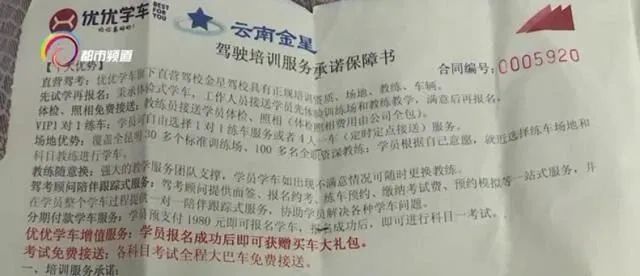 优优学车
BEST FOR YOU
云南金星
都市频道
驾驶培训服务承诺保障书
合同编号:0005920
大优势】
直营驾考:优优学车旗下直营驾校金星驾校具有正规培训资质、场地、教练、车辆。
先试学再报名:秉承体验式学车,工作人员接送学员先体验训练场和教练教学,满意后再报名。
体检、照相免费接送:教练员接送学员体检、照相(体检照相费用由公司全包)。
VIP1对1练车:学员可自由选择1对1练车服务或者4人一车(定时定点接送)服务。
场地优势:覆盖全昆明30多个标准训练场、100多名全
资深教练;学员根据自己意愿,就近选择练车场地和
科目教练进行学车。
教练随意换:强大的教学服务团队支撑,学员学车如出现不满意情况可随时更换教练。
驾考顾问陪伴跟踪式服务:驾考顾问提供面签、报名约考、练车预约、缴纳考试费、预约模拟等一站式服务,并
在学员整个学车过程提供一对一陪伴跟踪式服务,协助学员解决各种学车问题。
分期付款学车服务:学员预支付1980元即可报名学车,报名成功后,即可进行科目一考试。
优优学车增值服务:学员报名成功后即可获赠买车大礼包。
考试免费接送:各科目考试全程大巴车免费接送。
一、培训服务承诺: